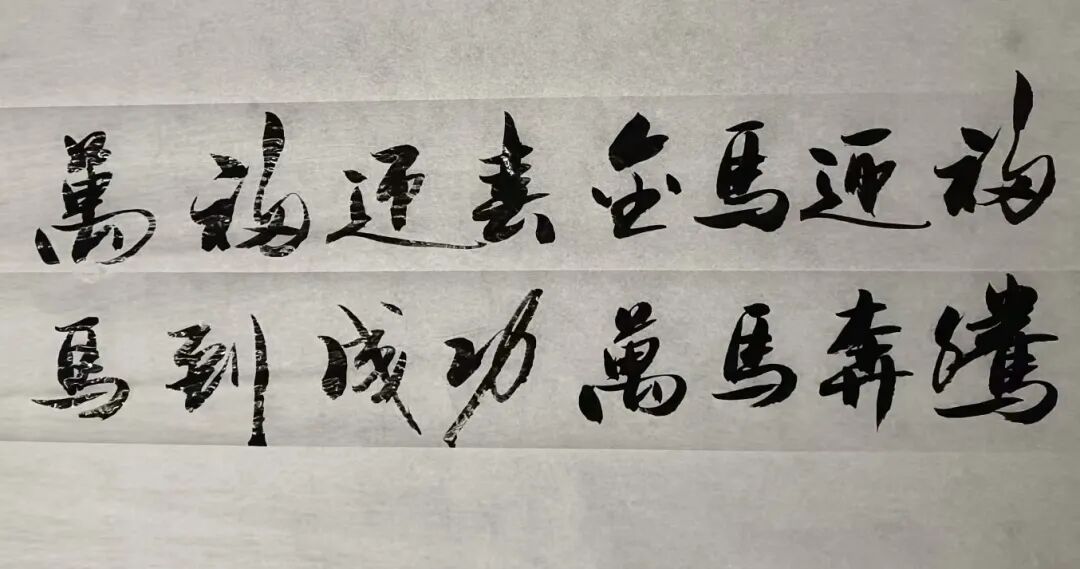 萬福迎春金馬迎福
馬到成功萬馬奔騰